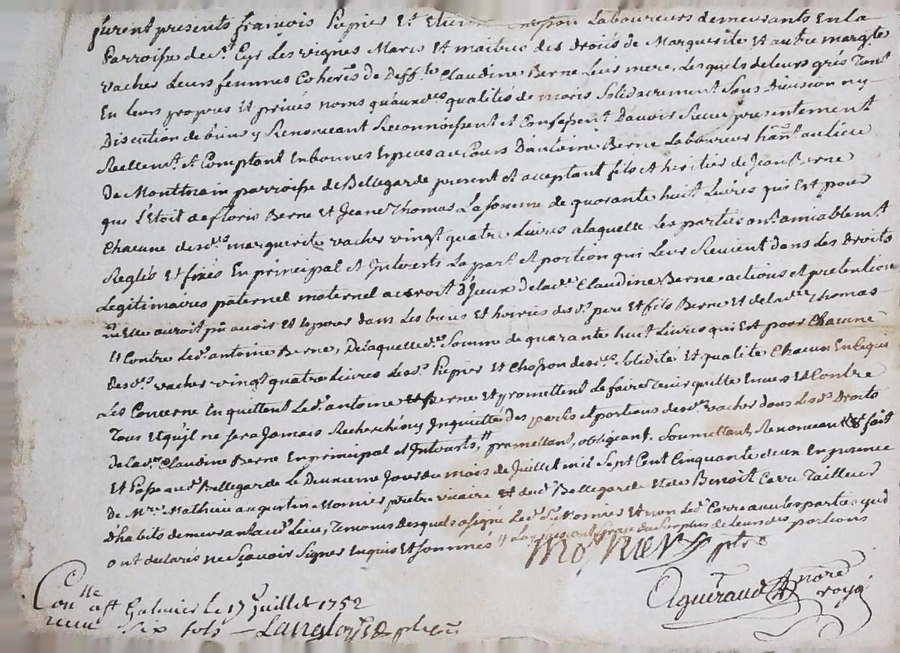 furent presents françois Pupier Et Laboureurs demeurants En la
Parroisse de St Cyr Les vignes Maris Et maitres des droits de Marguerite Et autre margte
vacher Leurs femmes Cohers de Deffte Claudine Berne Leur mere, Lesquels de leurs grés tant
En leurs propres et privés noms qu'auxdes qualités de maris solidairement sans Division ny
Discution de biens y Renonceant Reconnoissent et Confessent D'avoir Receu presentement
Reellemt et Comptant En bonnes Especes au Cours D'antoine Berne Laboureur hant au lieu
De Montmain parroisse de Bellegarde present et acceptant fils et heritier de Jean Berne
qui L'étoit de floris Berne et Jeane Thomas La somme de quarante huit Livres qui Est pour
Chacune desdes marguerite vacher vingt quatre Livres a laquelle Les parties ont amiablemt
Reglés Et fixés En principal et Interets La part et portion qui Leur Revient dans Les Droits
Legitimaires paternel maternel accroit D'yceux de lade Claudine Berne actions et pretention
qu'elle auroit pû avoir Et Exposer dans Les biens et hoiries desds pere et fils Berne Et de lade Thomas
Et Contre Ledt antoine Berne, De laquelle de Somme de quarante huit Livres qui Est pour Chacune
Desdes vacher vingt quatre Livres Lesds Pupier Et Chasson Esdes solidité Et qualité Chacun En Ce qui
Les Concerne En quittent Ledt antoine Berne Et promettent de faire tenir quitte Envers Et Contre
Tous Et qu'il ne sera Jamais Recherché ny Inquiette des parts et portions desdes vacher dans Lesds Droits
de lade Claudine Berne En principal et Interets, promettant, obligeant, soumettant, Renonceant fait
Et Passé audt Bellegarde Le Jour du mois de Juillet mil Sept Cent Cinquante deux En presence
de Mre Mathieu augustin Monier pretre vicaire Et dudt Bellegarde Et de Benoit Carre Tailleur
D'habits demeurant audt Lieu, Temoins Desquels a signé Ledt Sr Monier et non Ledt Carre avec Les parties qui
ont declarés ne sçavoir signer Enquis Et sommés de leurs portions
Monier ptre
Agniraud nore royal
Conlle aff Galmier le 17 Juillet 1752
six sols Langlois